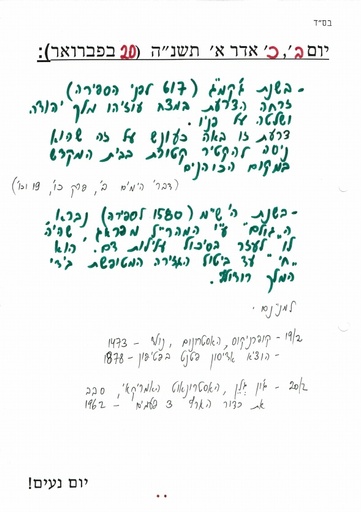 בס"ד
יום ב', כ' אדר א' תשנ"ה (20 בפברואר):
- בשנת ג'קמ"ג (617 לפני הספירה)
זרחה הצרעת במצח עוזיהו מלך יהודה
ושלטה על פניו.
צרעת זו באה כעונש על זה שהוא
ניסה להקטיר קטורת בבית המקדש
במקום הכוהנים
(דברי הימים ב', פרק כו', 19 וכו')
- בשנת ה'ש"מ (1580 לספירה) נברא
ה"גולם" ע"י המהר"ל מפראג, שהיה
לו לעזר בסיכול עלילות דם. הוא
"חי" עד ביטול הגזירה המטופשת בידי
המלך רודולף.
למניינם -
19/2 - קופרניקוס, האסטרונום, נולד - 1473
- הוציא אדיסון פטנט בפטיפון - 1878
20/2 - ג'ון גלן, האסטרונאוט האמריקאי, סבב
את כדור הארץ 3 פעמים - 1962
יום נעים!